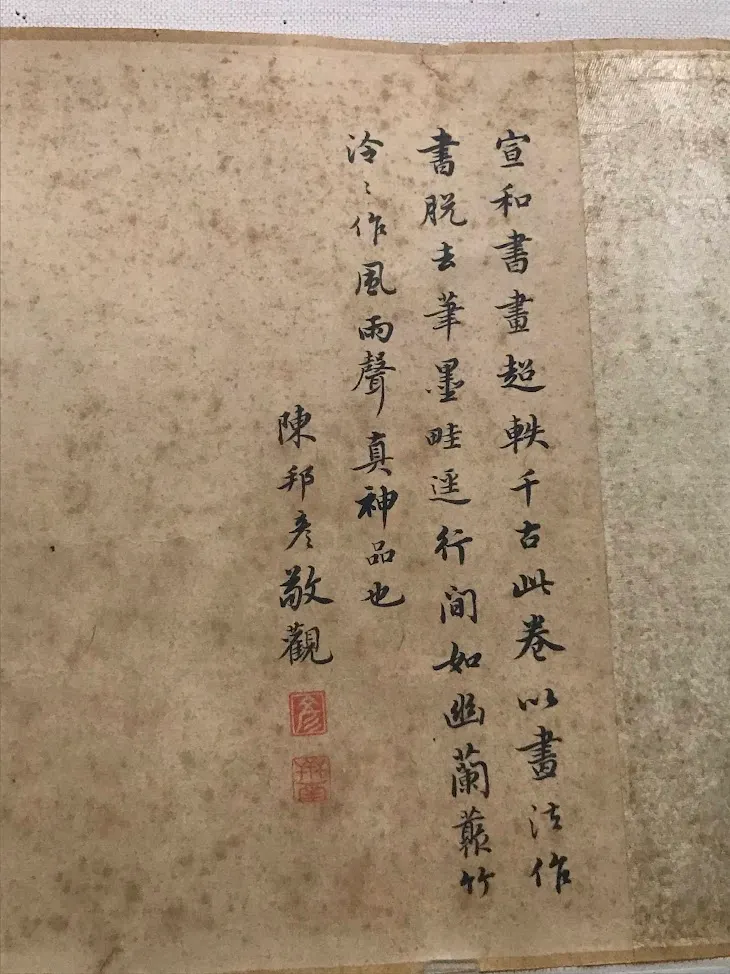 宣和書畫超軼千古此卷以畫法作
書脫去筆墨畦逕行間如幽蘭藂竹
泠〻作風雨聲真神品也
陳邦彥敬觀
彥